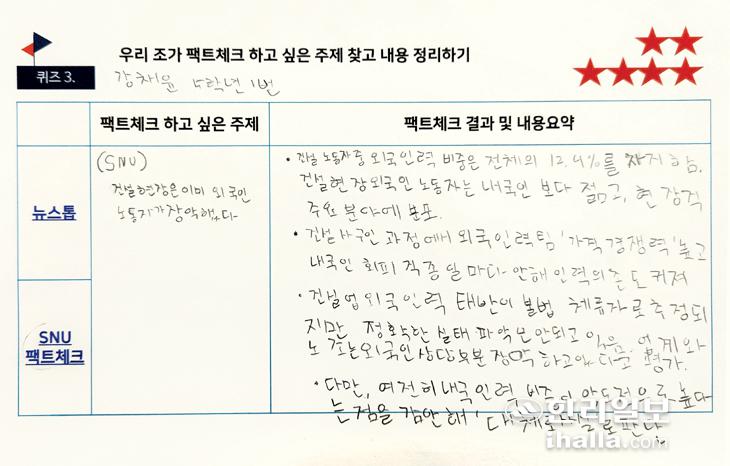 우리 조가 팩트체크 하고 싶은 주제 찾고 내용 정리하기
퀴즈 3.
강채윤 5학년 1반
팩트체크 하고 싶은 주제
팩트체크 결과 및 내용요약
뉴스톱
SNU
팩트체크
(SNU)
건설현장은 이미 외국인
노동자가 장악했다
• 건설 노동자 중 외국인력 비중은 전체의 12.4%를 차지함.
건설현장 외국인 노동자는 내국인 보다 젊고, 현장직
주요 분야에 분포.
• 건설 구인 과정에서 외국인력팀 '가격경쟁력' 높고
내국인 회피 직종일마다 안해 인력의존도 커져
• 건설업 외국인력 태반이 불법 체류자로 추정되
지만 정확한 실태 파악은 안되고 있음. 업계와
노조는 외국인 상당부분 장악하고있다고 평가.
• 다만, 여전히 내국인력 비중이 압도적으로 높다
는점을 감안해 '대체로
한라일보
ihalla.com